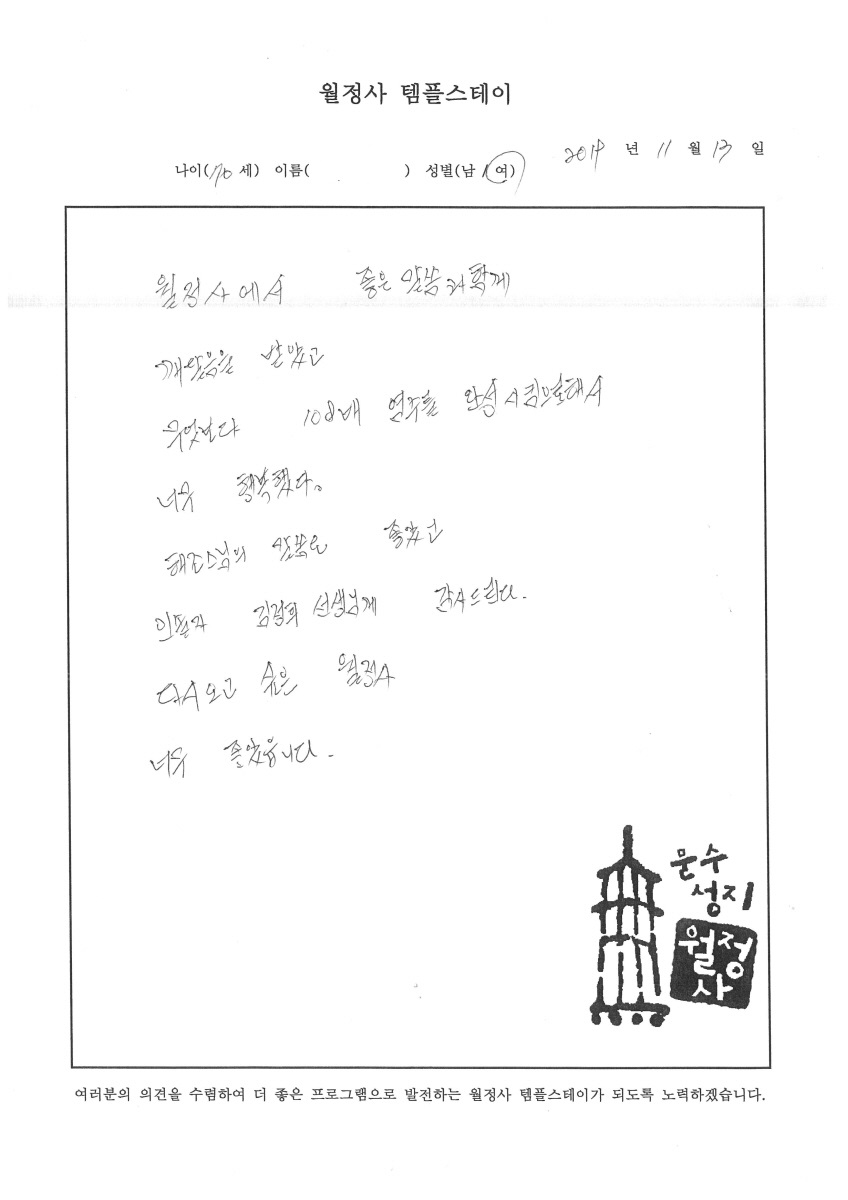 월정사 템플스테이
2019 년 11 월 13 일
나이(70 세) 이름( ) 성별(남 / 여)
월정사에서 좋은 말씀과 함께
깨달음을 받았고
무엇보다 108배 염주를 완성시킴으로해서
너무 행복했다.
해조스님의 말씀도 좋았고
인솔자 김정희 선생님께 감사드린다.
다시오고 싶은 월정사
너무 좋았읍니다.
문수
성지
월정
사
여러분의 의견을 수렴하여 더 좋은 프로그램으로 발전하는 월정사 템플스테이가 되도록 노력하겠습니다.